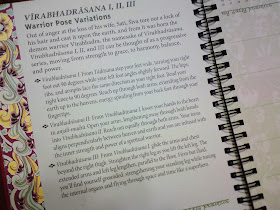 VĪRABHADRĀSANA I, II, III
Warrior Pose Variations
Out of anger at the loss of his wife, Sati, Śiva tore out a lock of
his hair and cast it upon the earth, and from it was born the
demon warrior Vīrabhadra, the namesake of Vīrabhadrāsana.
Vīrabhadrāsana I, II, and III can be thought of as progressive
varies, moving from strength to grace, to harmony, balance,
and power.
Vīrabhadrāsana I: From Tāḍāsana step your feet wide, turning your right
foot out 90 degrees while your left foot angles slightly forward. The hips,
ribs, and armpits face the same direction as your right foot. Bend your
right knee to 90 degrees. Reach up through both arms, extending from the
earth up to the heavens, energy spiraling from your back foot through your
fingertips.
Vīrabhadrāsana II: From Vīrabhadrāsana I, lower your hands to be
in
aligns perpendicularly between the earth and you are infused with
the inner strength and power of a spiritual warrior.
Vīrabhadrāsana III: From Vīrabhadrāsana I, glide the
beyond the right thigh. Straighten the right leg as you lift the left leg. The
extended arms and left leg lengthen, parallel to the floor. First
you'll find yourself grounded, strengthening your standing leg while toning
the internal organs and flying through space and time like a superhero.